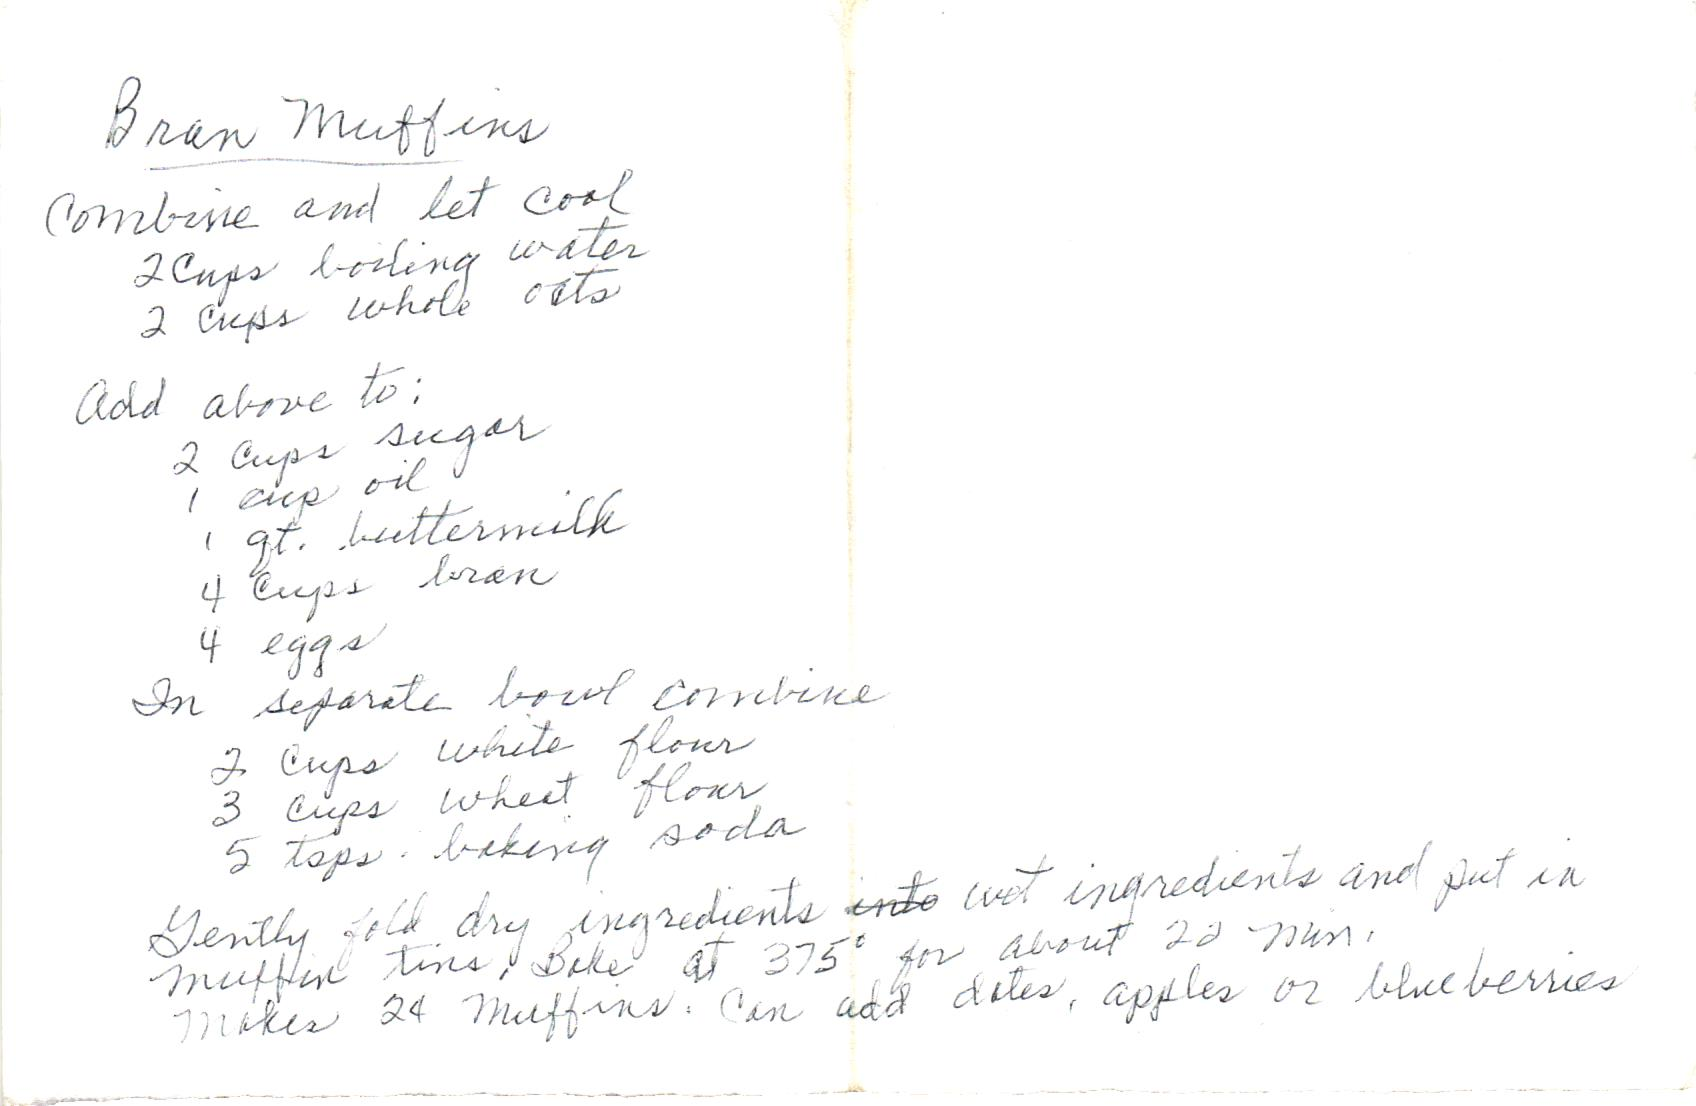 Bran Muffins
Combine and let cool
2 Cups boiling water
2 cups whole oats
Add above to:
2 cups sugar
1 cup oil
1 qt. buttermilk
4 cups bran
4 eggs
In separate bowl combine
2 cups white flour
3 cups wheat flour
5 tsps. baking soda
Gently fold dry ingredients into wet ingredients and put in
muffin tins. Bake at 375° for about 20 min.
Makes 24 Muffins. Can add dates, apples or blueberries